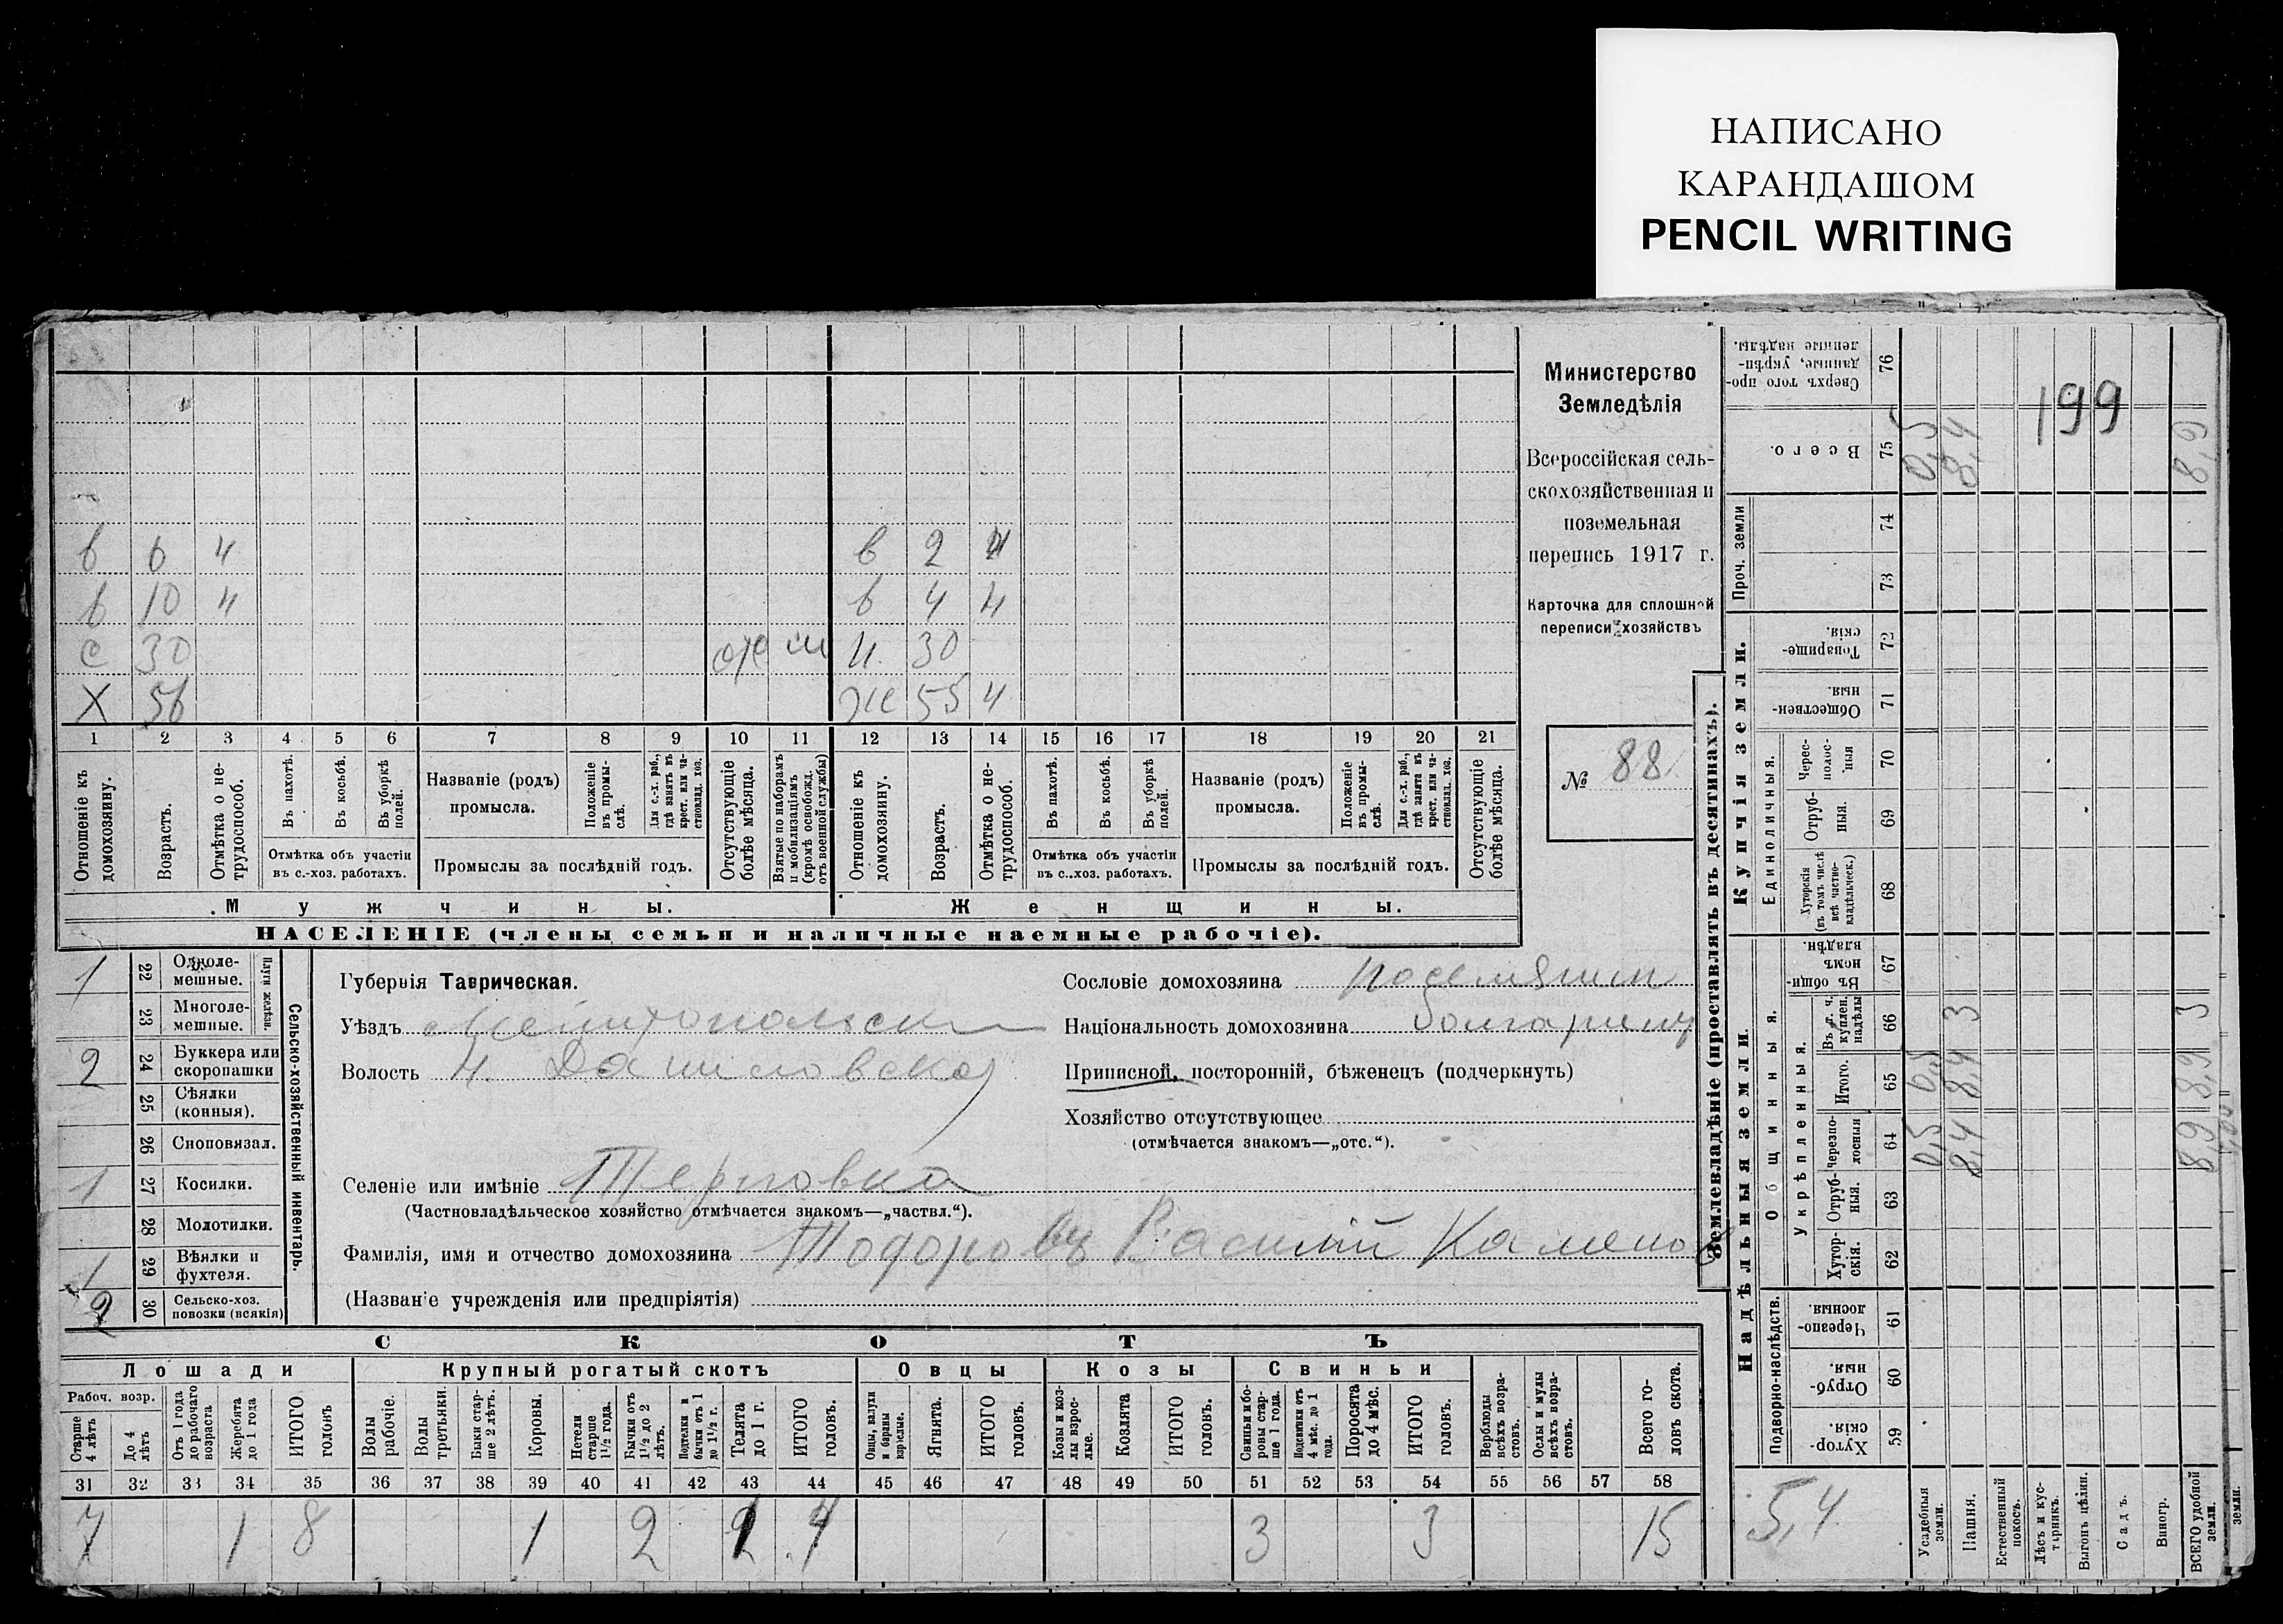 НАПИСАНО
КАРАНДАШОМ
PENCIL WRITING
в 6 ч в 2 ч
в 10 ч в 4 ч
с 30 30
Х 56 ж 55 ч
1 2 3 4 5 6 7 8 9 10 11 12 13 14 15 16 17 18 19 20 21
Отношеніе къ домохозяину.
Возрастъ.
Отмѣтка о нетрудоспособ.
Въ пахотѣ.
Въ косьбѣ.
Въ уборкѣ полей.
Отмѣтка объ участіи
въ с.-хоз. работахъ.
Названіе (родъ)
промысла.
Положеніе въ промыслѣ.
Для с.-х. раб., гдѣ занятъ въ крест. или частновлад. хоз.
Промыслы за послѣдній годъ.
Отсутствующіе болѣе мѣсяца.
Взятые по наборамъ и мобилизаціямъ (кромѣ освобожд. отъ военной службы)
Отношеніе къ домохозяину.
Возрастъ.
Отмѣтка о нетрудоспособ.
Въ пахотѣ.
Въ косьбѣ.
Въ уборкѣ полей.
Отмѣтка объ участіи
въ с.-хоз. работахъ.
Названіе (родъ)
промысла.
Положеніе въ промыслѣ.
Для с.-х. раб., гдѣ занятъ въ крест. или частновлад. хоз.
Промыслы за послѣдній годъ.
Отсутствующіе болѣе мѣсяца.
Мужчины. Женщины.
НАСЕЛЕНІЕ (члены семьи и наличные наемные рабочіе).
Министерство
Земледѣлія
Всероссійская сель-
скохозяйственная и
поземельная
перепись 1917 г.
Карточка для сплошной
переписи хозяйствъ
№ 88
1 22 Одноле-
мешные.
23 Многоле-
мешные.
Плуги желѣзн.
2 24 Буккера или
скоропашки
25 Сѣялки
(конныя).
26 Сноповязал.
1 27 Косилки.
28 Молотилки.
1 29 Вѣялки и
фухтеля.
2 30 Сельско-хоз.
повозки (всякія)
Сельско-хозяйственный инвентарь.
Губернія Таврическая.
Уѣздъ Мелитопольск
Волость Н. Даниловская
Селеніе или имѣніе Терновка
(Частновладѣльческое хозяйство отмѣчается знакомъ—„частвл.“).
Фамилія, имя и отчество домохозяина Тодоровъ Василий Каменов
(Названіе учрежденія или предпріятія)
Сословіе домохозяина поселянин
Національность домохозяина болгаринъ
Приписной, посторонній, бѣженецъ (подчеркнуть)
Хозяйство отсутствующее
(отмѣчается знакомъ—„отс.“).
СКОТЪ
Лошади Крупный рогатый скотъ Овцы Козы Свиньи
Рабоч. возр.
Старше 4 лѣтъ
До 4 лѣтъ
Отъ 1 года до рабочаго возраста
Жеребята до 1 года
ИТОГО головъ
Волы рабочіе.
Волы третьяки.
Быки старше 2 лѣтъ.
Коровы.
Нетели старше 1½ года.
Бычки отъ 1½ до 2 лѣтъ.
Подтелки и бычки отъ 1 до 1½ г.
Телята до 1 г.
ИТОГО головъ.
Овцы, валухи и бараны взрослые.
Ягнята.
ИТОГО головъ.
Козы и козлы взрослые.
Козлята
ИТОГО головъ.
Свиньи и боровы старше 1 года.
Подсвинки отъ 4 мѣс. до 1 года.
Поросята до 4 мѣс.
ИТОГО головъ.
Верблюды всѣхъ возрастовъ.
Ослы и мулы всѣхъ возрастовъ.
Всего головъ скота.
31 32 33 34 35 36 37 38 39 40 41 42 43 44 45 46 47 48 49 50 51 52 53 54 55 56 57 58
7 1 8 1 2 3 3 15
Землевладѣніе (проставлять въ десятинахъ).
Купчія земли.
Надѣльныя земли.
Сверхъ того проданные, укрѣпленные надѣлы. 76
Всего. 75 0,5 8,4 8,9
199
Проч. земли 74
73
Товарищескія. 72
Общественныя. 71
Единоличныя.
Чересполосныя 70
Отрубныя. 69
Хуторскія (въ томъ числѣ всѣ частновладѣльческ.) 68
Въ общинномъ владѣн. 67
Общинныя.
Укрѣпленныя.
Въ т. ч. куплен. надѣлы 66 3 3
Итого. 65 0,5 8,4 8,9
Черезполосныя 64 0,5 8,4 8,9
Отрубныя. 63
Хуторскія. 62
Подворно-наслѣдств.
Черезполосныя. 61
Отрубныя. 60
Хуторскія. 59
5,4
Усадебныя земли.
Пашня.
Естественный покосъ.
Лѣсъ и кустарникъ.
Выгонъ цѣлин.
Садъ.
Виногр.
ВСЕГО удобной земли.
земли.